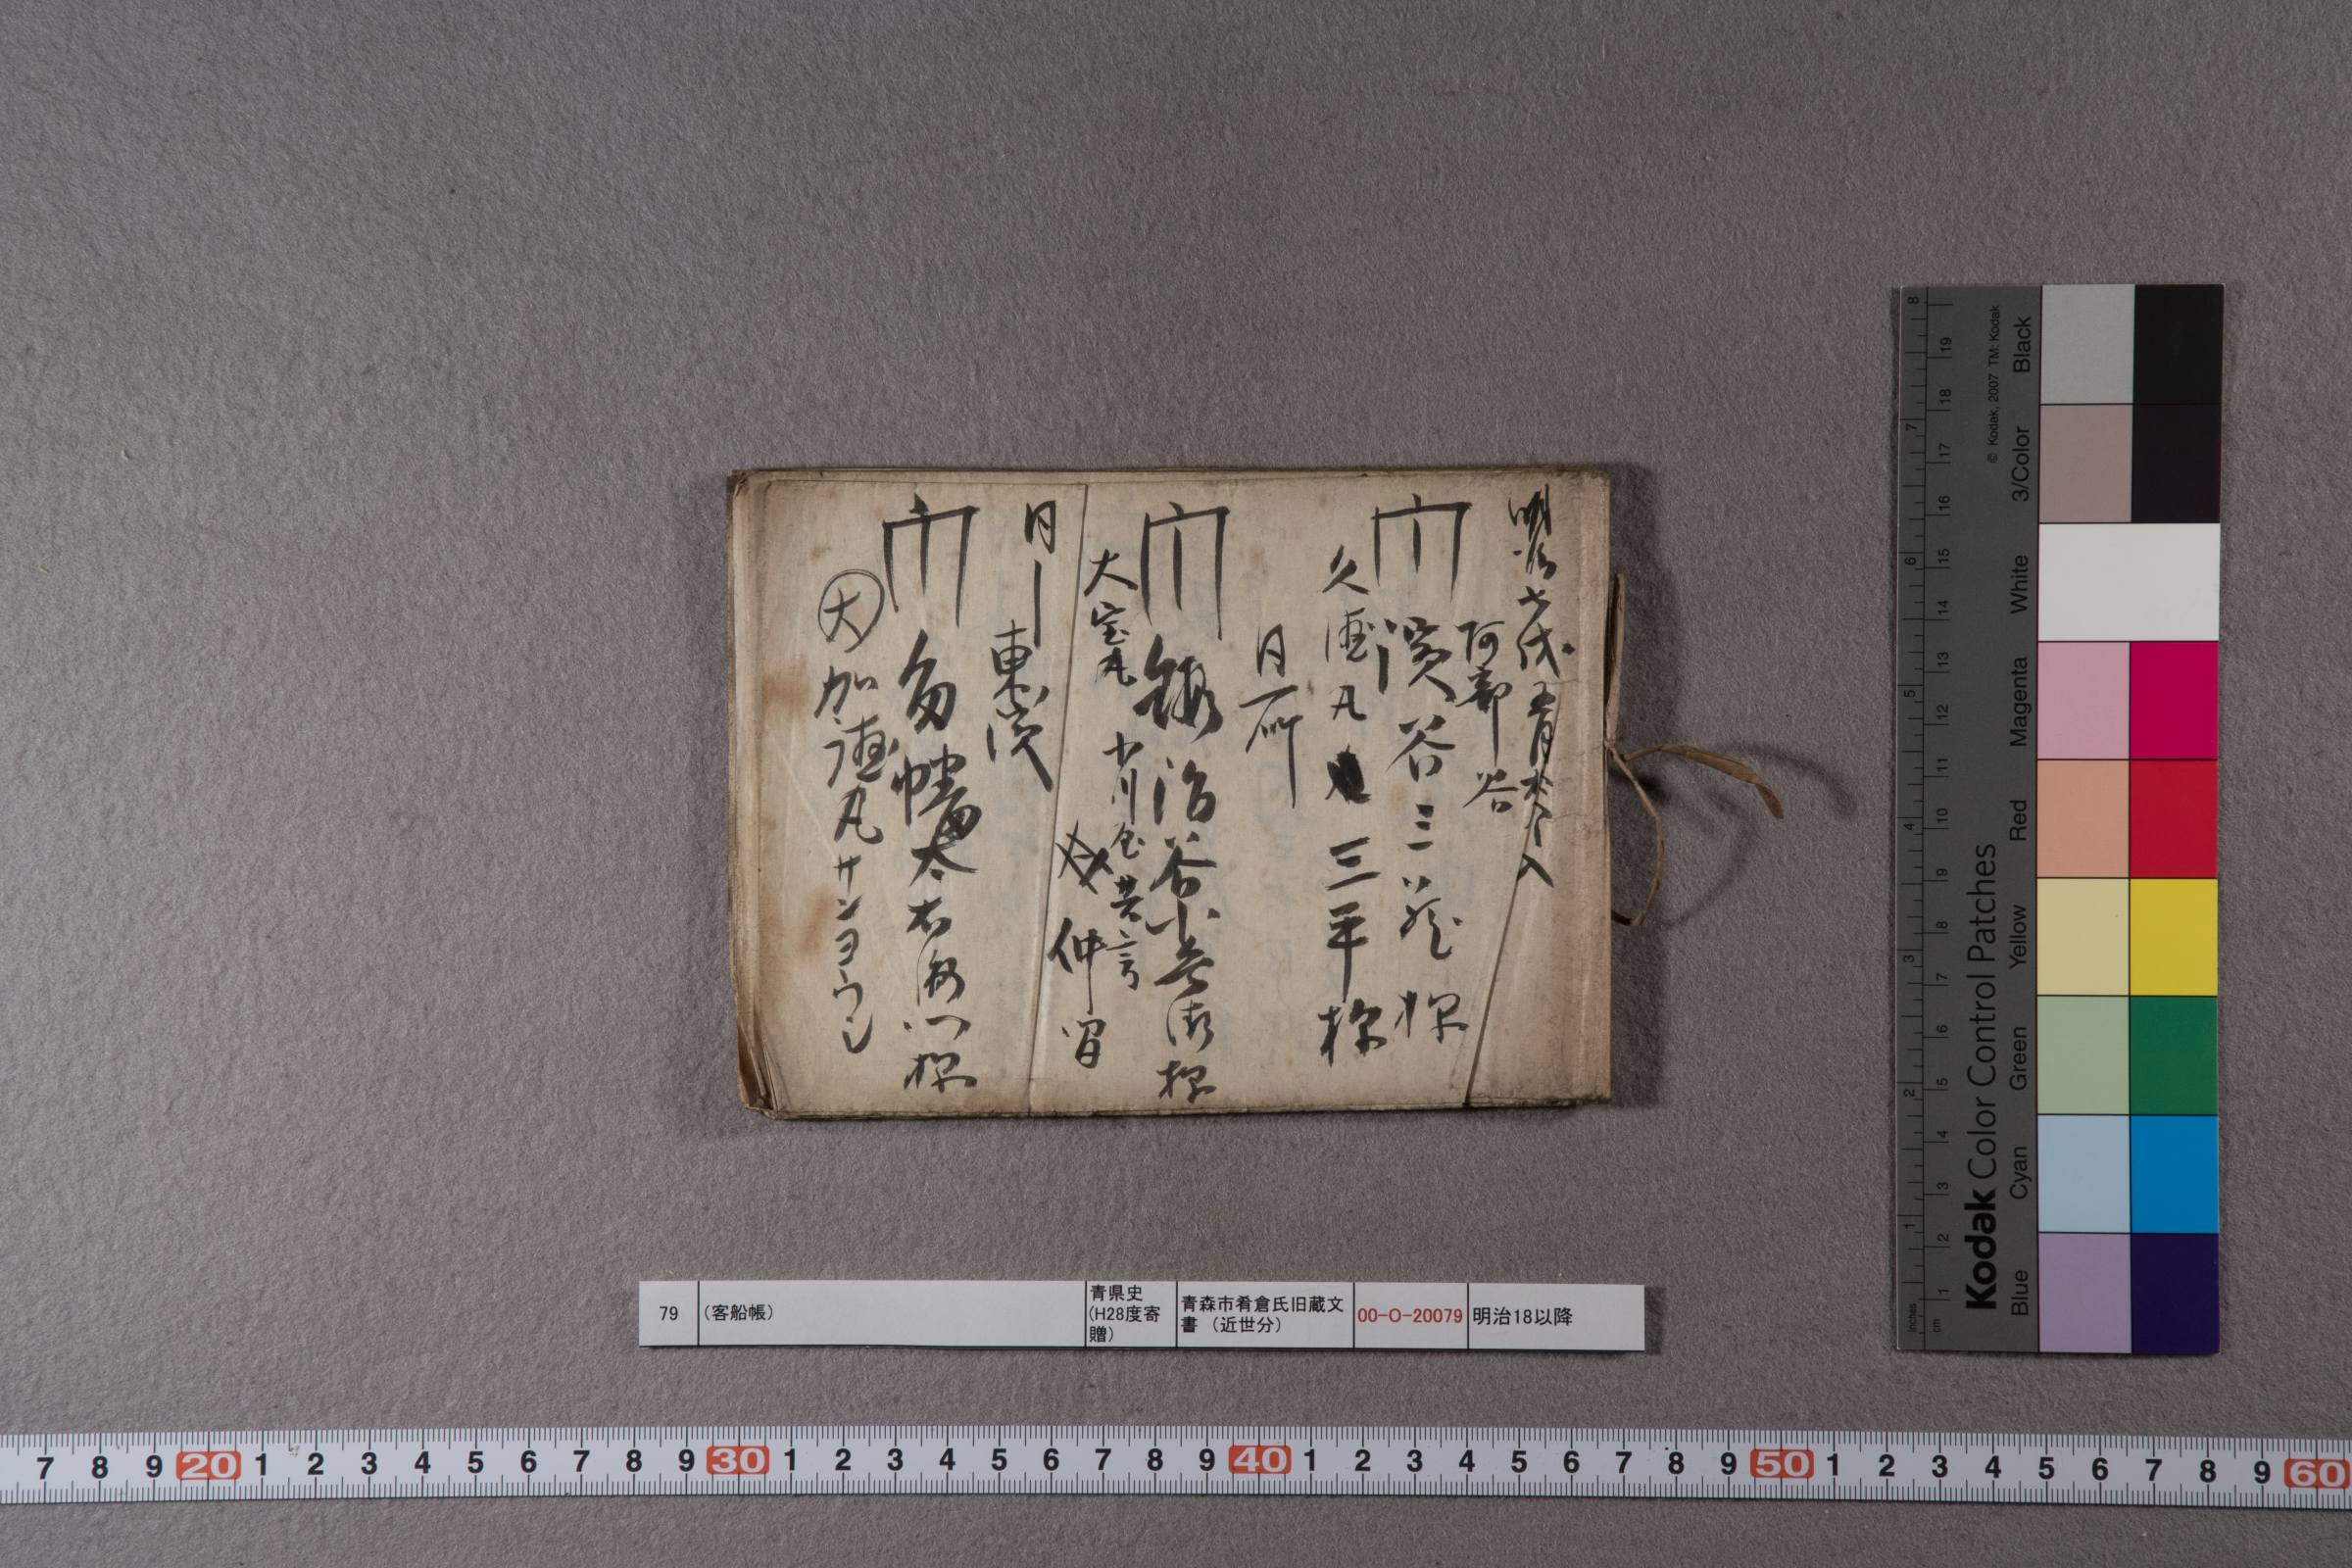 明治七戌五月
入
阿部谷
濱谷三蔵様
久徳丸
三平様
同所
鍛治谷小兵衛様
大宝丸
小川
仲
同
東濱
因幡太右衛門様
大
加徳丸
サンヨウシ
79
(客船帳)
青県史
(H28度寄
贈)
青森市肴倉氏旧蔵文
書 (近世分)
00-O-20079
明治18以降
Kodak Color Control Patches
© Kodak, 2007 TM: Kodak
Blue Cyan Green Yellow Red Magenta White 3/Color Black
inches 1 2 3 4 5 6 7 8
cm 1 2 3 4 5 6 7 8 9 10 11 12 13 14 15 16 17 18 19
7 8 9 20 1 2 3 4 5 6 7 8 9 30 1 2 3 4 5 6 7 8 9 40 1 2 3 4 5 6 7 8 9 50 1 2 3 4 5 6 7 8 9 60